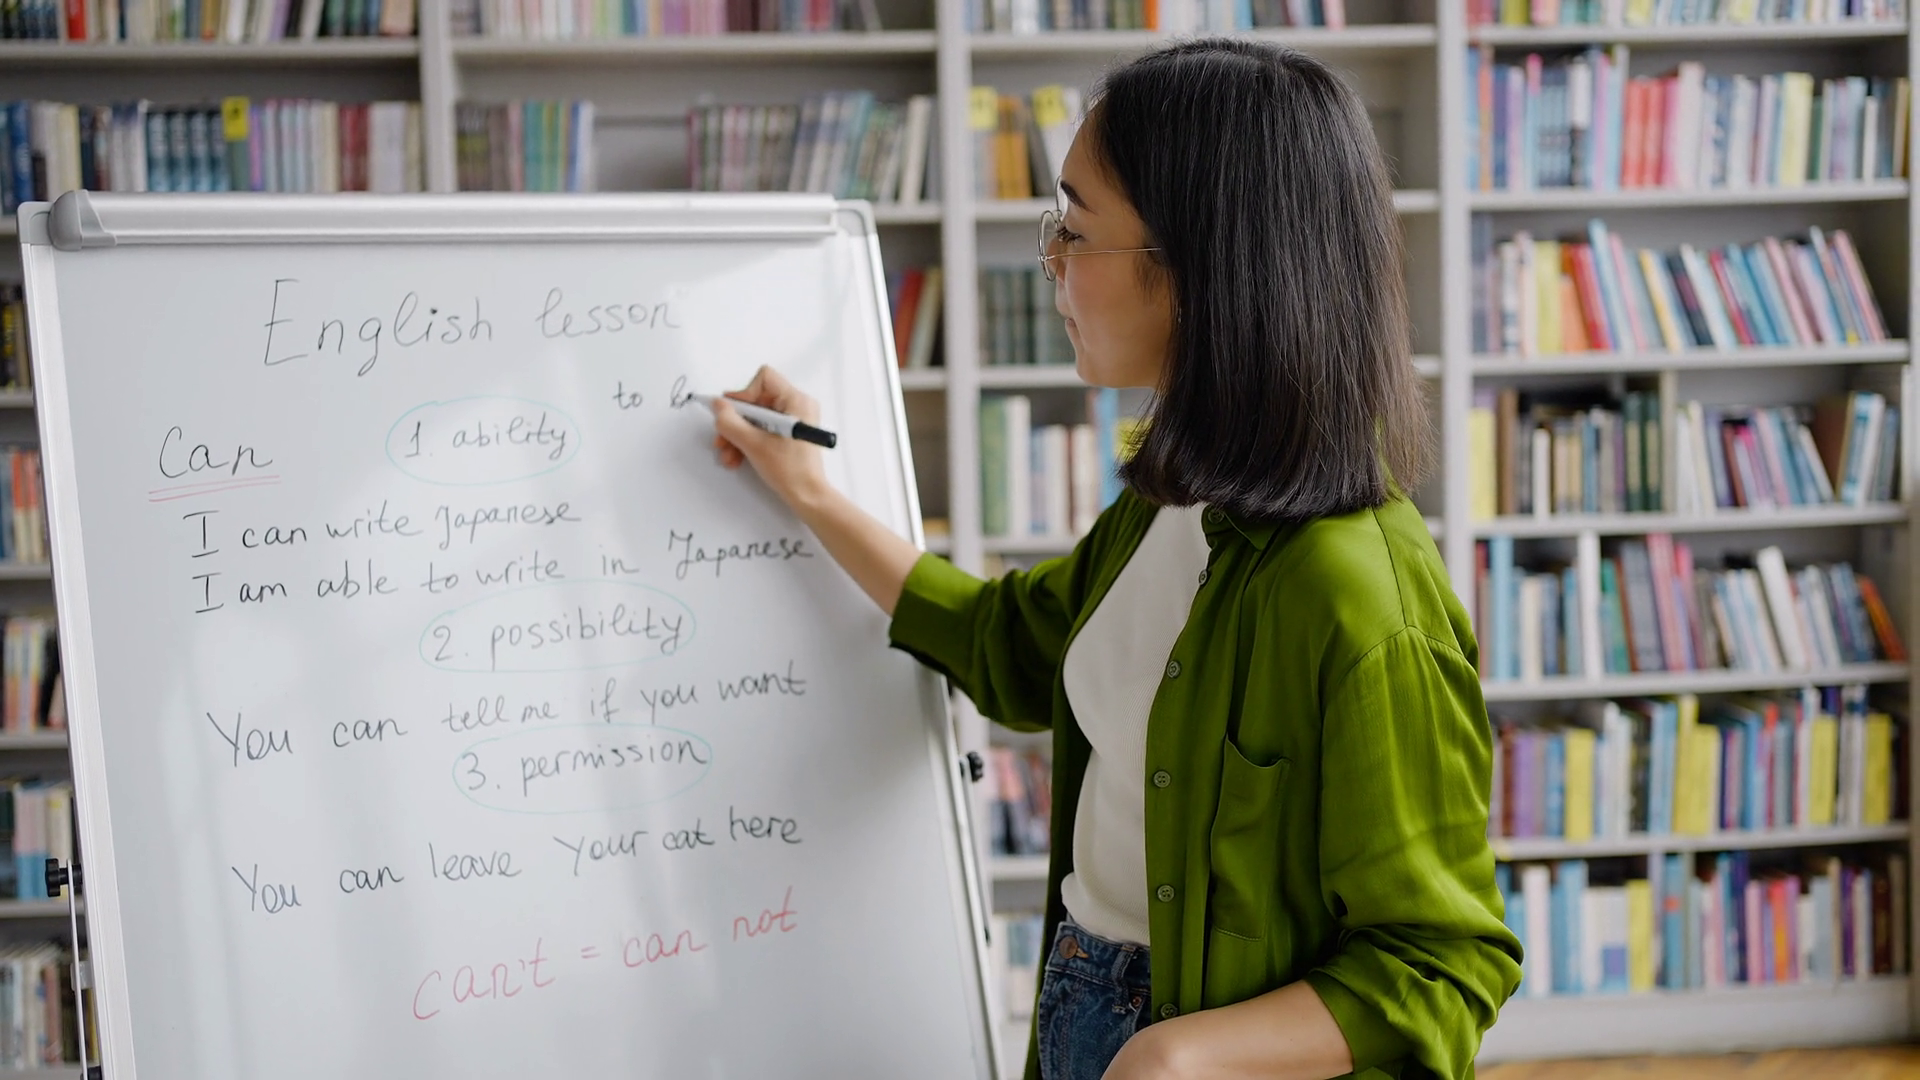 English lesson
to be
Can
1. ability
I can write Japanese
I am able to write in Japanese
2. possibility
You can tell me if you want
3. permission
You can leave your cat here
can't = can not